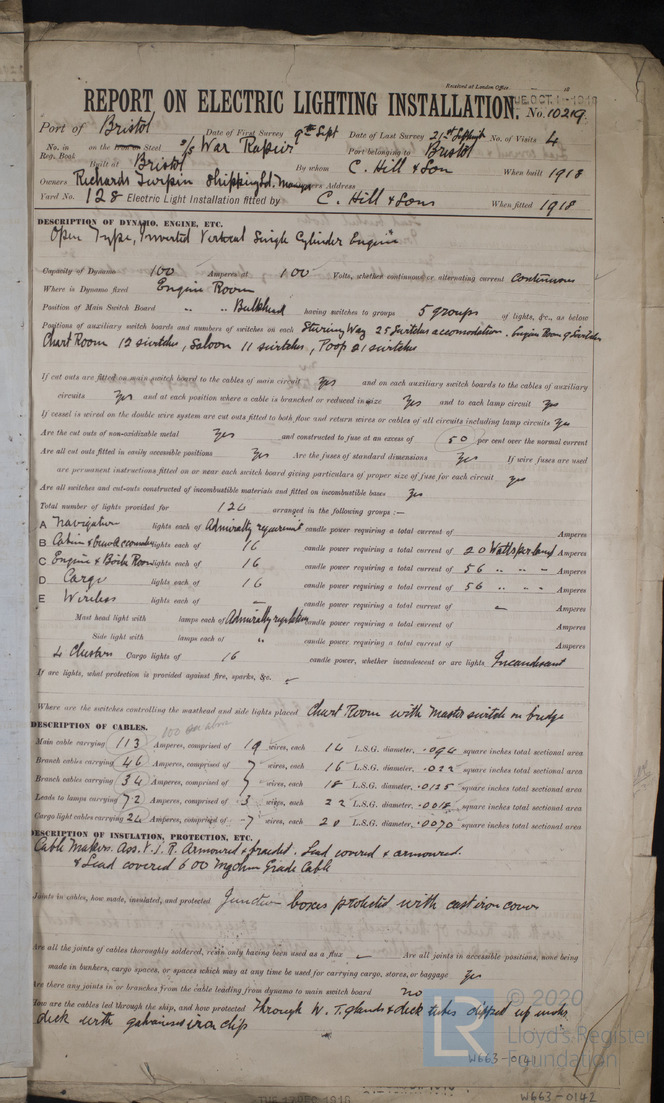 Received at London Office 18
TUE. OCT. 1 - 1918
REPORT ON ELECTRIC LIGHTING INSTALLATION. No. 10219.
Port of Bristol Date of First Survey 9th Sept Date of Last Survey 21st Sept No. of Visits 4
No. in Reg. Book on the Iron or Steel S/S War Rapier Port belonging to Bristol
Built at Bristol By whom C. Hill & Son When built 1918
Owners Richards Turpin Shipping Ld. Managers Owners Address
Yard No. 128 Electric Light Installation fitted by C. Hill & Sons When fitted 1918
DESCRIPTION OF DYNAMO, ENGINE, ETC.
Open Type, Inverted Vertical Single Cylinder Engine
Capacity of Dynamo 100 Amperes at 100 Volts, whether continuous or alternating current Continuous
Where is Dynamo fixed Engine Room
Position of Main Switch Board " " Bulkhead having switches to groups 5 groups of lights, &c., as below
Positions of auxiliary switch boards and numbers of switches on each Steering Way 25 switches accomodation, Engine Room 9 switches
Chart Room 12 switches, Saloon 11 switches, Poop 21 switches
If cut outs are fitted on main switch board to the cables of main circuit yes and on each auxiliary switch boards to the cables of auxiliary
circuits yes and at each position where a cable is branched or reduced in size yes and to each lamp circuit yes
If vessel is wired on the double wire system are cut outs fitted to both flow and return wires or cables of all circuits including lamp circuits yes
Are the cut outs of non-oxidizable metal yes and constructed to fuse at an excess of 50 per cent over the normal current
Are all cut outs fitted in easily accessible positions yes Are the fuses of standard dimensions yes If wire fuses are used
are permanent instructions fitted on or near each switch board giving particulars of proper size of fuse for each circuit yes
Are all switches and cut-outs constructed of incombustible materials and fitted on incombustible bases yes
Total number of lights provided for 124 arranged in the following groups :—
A Navigation lights each of Admiralty requirement candle power requiring a total current of Amperes
B Cabin & lights each of 16 candle power requiring a total current of 20 Watts per lamp Amperes
C Engine & Boiler Room lights each of 16 candle power requiring a total current of 56 " " " Amperes
D Cargo lights each of 16 candle power requiring a total current of 56 " " " Amperes
E Wireless lights each of — candle power requiring a total current of — Amperes
Mast head light with lamps each of Admiralty regulation candle power requiring a total current of Amperes
Side light with lamps each of " candle power requiring a total current of Amperes
4 Clusters Cargo lights of 16 candle power, whether incandescent or arc lights Incandescent
If arc lights, what protection is provided against fire, sparks, &c. —
Where are the switches controlling the masthead and side lights placed Chart Room with master switch on bridge
DESCRIPTION OF CABLES. 100 as above
Main cable carrying 113 Amperes, comprised of 19 wires, each 14 L.S.G. diameter, .094 square inches total sectional area
Branch cables carrying 46 Amperes, comprised of 7 wires, each 16 L.S.G. diameter, .022 square inches total sectional area
Branch cables carrying 34 Amperes, comprised of 7 wires, each 18 L.S.G. diameter, .0125 square inches total sectional area
Leads to lamps carrying 7.2 Amperes, comprised of 3 wires, each 22 L.S.G. diameter, .0018 square inches total sectional area
Cargo light cables carrying 24 Amperes, comprised of 7 wires, each 20 L.S.G. diameter, .0070 square inches total sectional area
DESCRIPTION OF INSULATION, PROTECTION, ETC.
Cable Makers. Ass. V.I.R. Armoured & braided. Lead covered & armoured.
& Lead covered 600 Megohm Grade Cable
Joints in cables, how made, insulated, and protected Junction boxes protected with cast iron cover
Are all the joints of cables thoroughly soldered, resin only having been used as a flux — Are all joints in accessible positions, none being
made in bunkers, cargo spaces, or spaces which may at any time be used for carrying cargo, stores, or baggage yes
Are there any joints in or branches from the cable leading from dynamo to main switch board no
How are the cables led through the ship, and how protected Through W. T. glands & deck tubes clipped up under
deck with galvanised iron clip
© 2020
Lloyd's Register
Foundation
LR
W663-0141
W663-0142